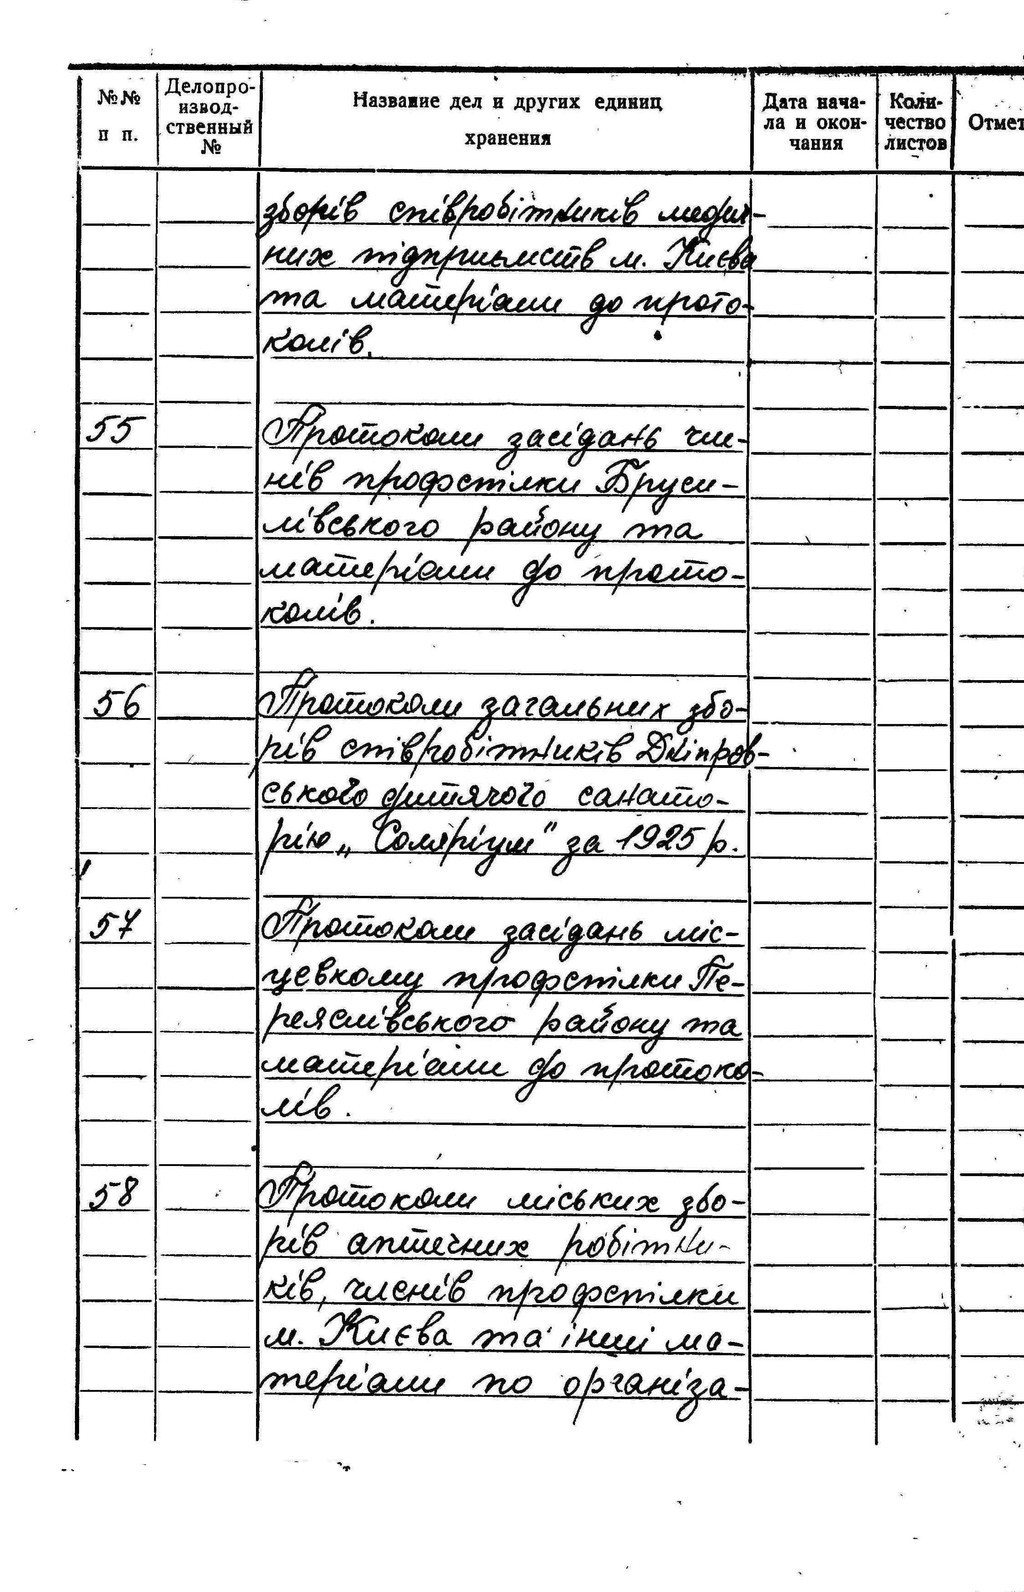 №№ п п.
Делопро-
извод-
ственный
№
Название дел и других единиц
хранения
Дата нача-
ла и окон-
чания
Коли-
чество
листов
Отмет
зборів співробітників медич-
них підприємств м. Києва
та матеріали до прото-
колів.
55 Протоколи засідань чле-
нів профспілки Бруси-
лівського району та
матеріали до прото-
колів.
56 Протоколи загальних збо-
рів співробітників Дніпров-
ського дитячого санато-
рію „Соляріум" за 1925 р.
57 Протоколи засідань міс-
цевкому профспілки Пе-
реяслівського району та
матеріали до протоко-
лів.
58 Протоколи міських збо-
рів аптечних робітни-
ків, членів профспілки
м. Києва та інші ма-
теріали по організа-